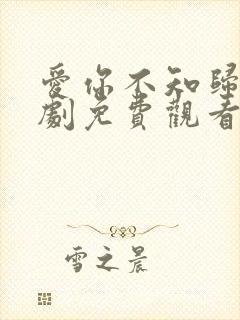 愛你不知歸
劇免費觀看
雪之晨